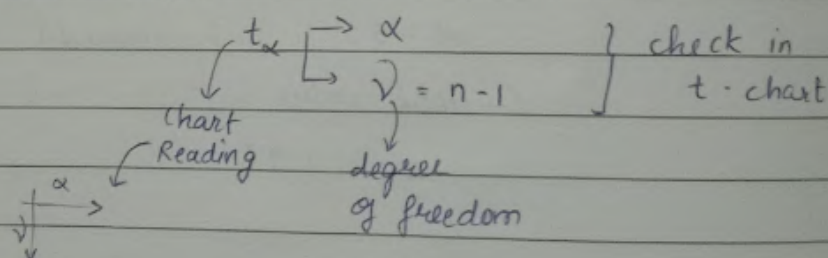 t_α → α } check in
→ ν = n - 1 t. chart
Chart
Reading degree
α of freedom
ν